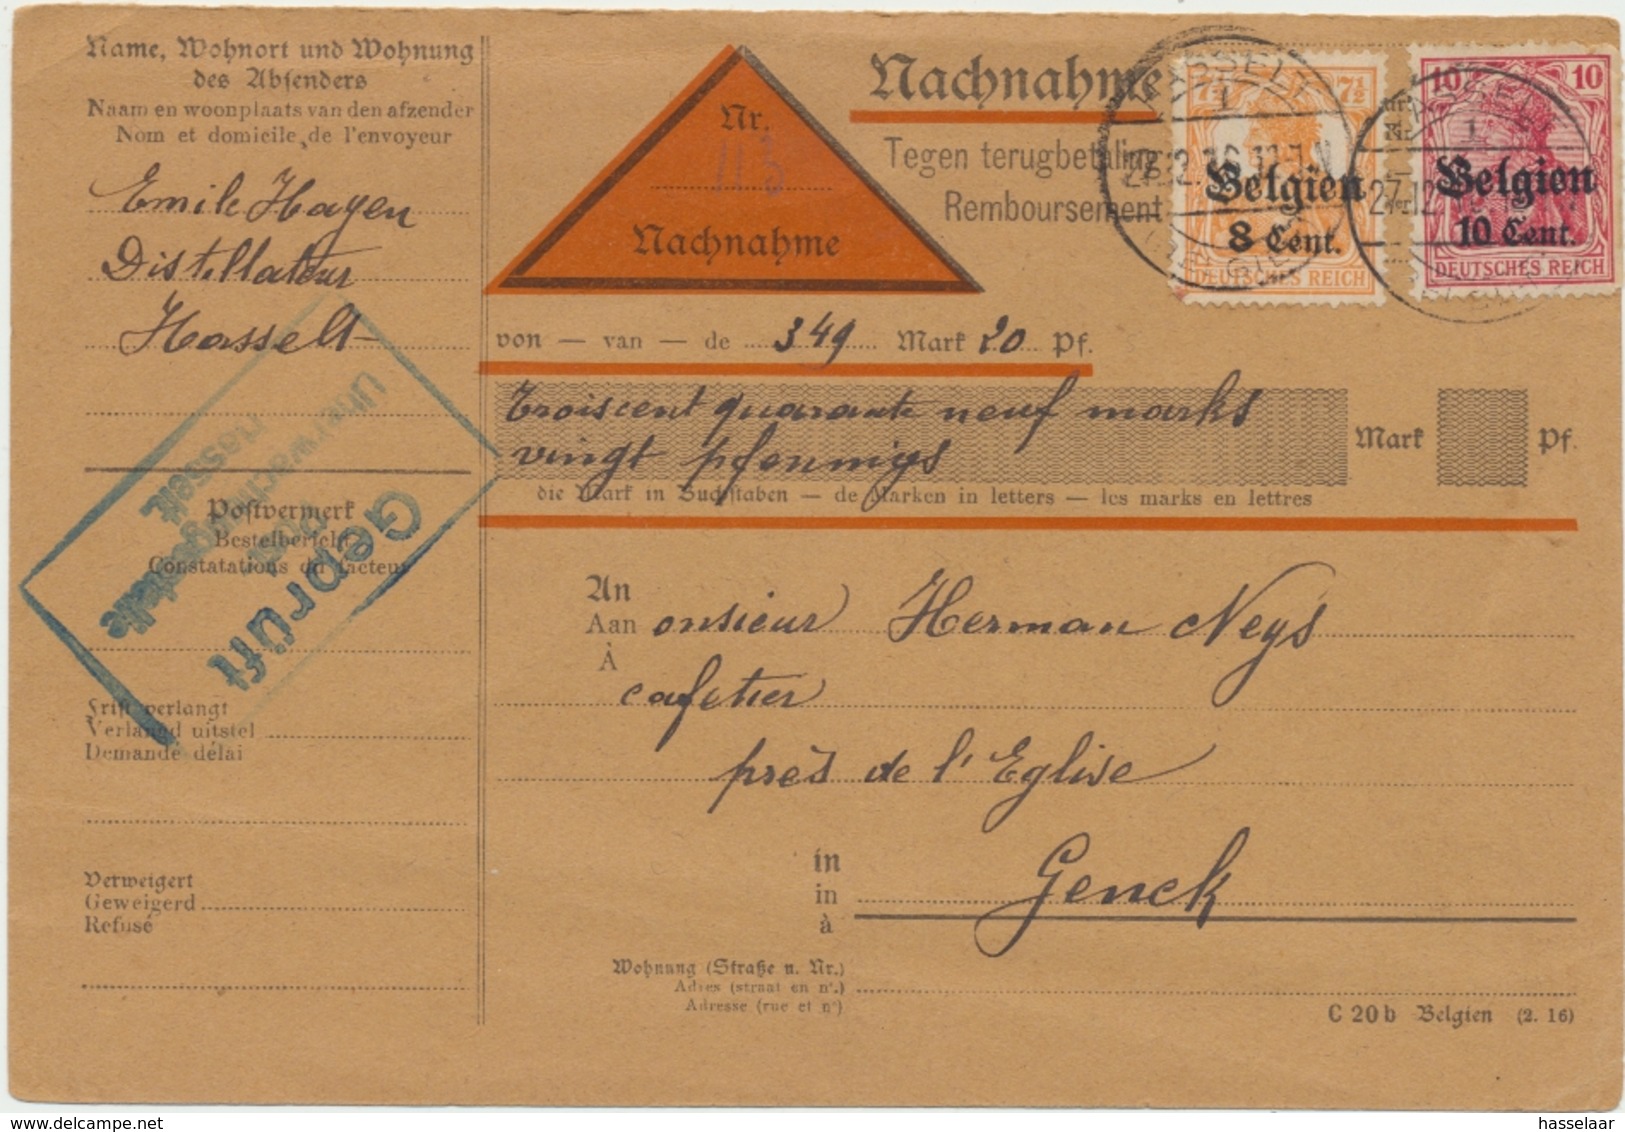 Name, Wohnort und Wohnung
des Absenders
Naam en woonplaats van den afzender
Nom et domicile de l'envoyeur
Emile Hayen
Distillateur
Hasselt
Postvermerk
Bestelbericht
Constatations du facteur
Frist verlangt
Verlangd uitstel
Demande délai
Verweigert
Geweigerd
Refusé
Geprüft
Post
Überwachungsstelle
Hasselt.
Nr.
113
Nachnahme
Nachnahme
Tegen terugbetaling
Remboursement
7½ 7½
Belgien
8 Cent.
DEUTSCHES REICH
10 10
Belgien
10 Cent.
DEUTSCHES REICH
HASSELT
1
27.12.16.11-12V
HASSELT
1
27.12
von — van — de 349 Mark 20 Pf.
Troiscent quarante neuf marks
vingt pfennigs
Mark Pf.
die Mark in Buchstaben — de Marken in letters — les marks en lettres
An
Aan
À
onsieur Herman Neys
cafetier
près de l'Eglise
in
in
à
Genck
Wohnung (Straße u. Nr.)
Adres (straat en nr.)
Adresse (rue et n°)
C 20 b Belgien (2. 16)
hasselaar